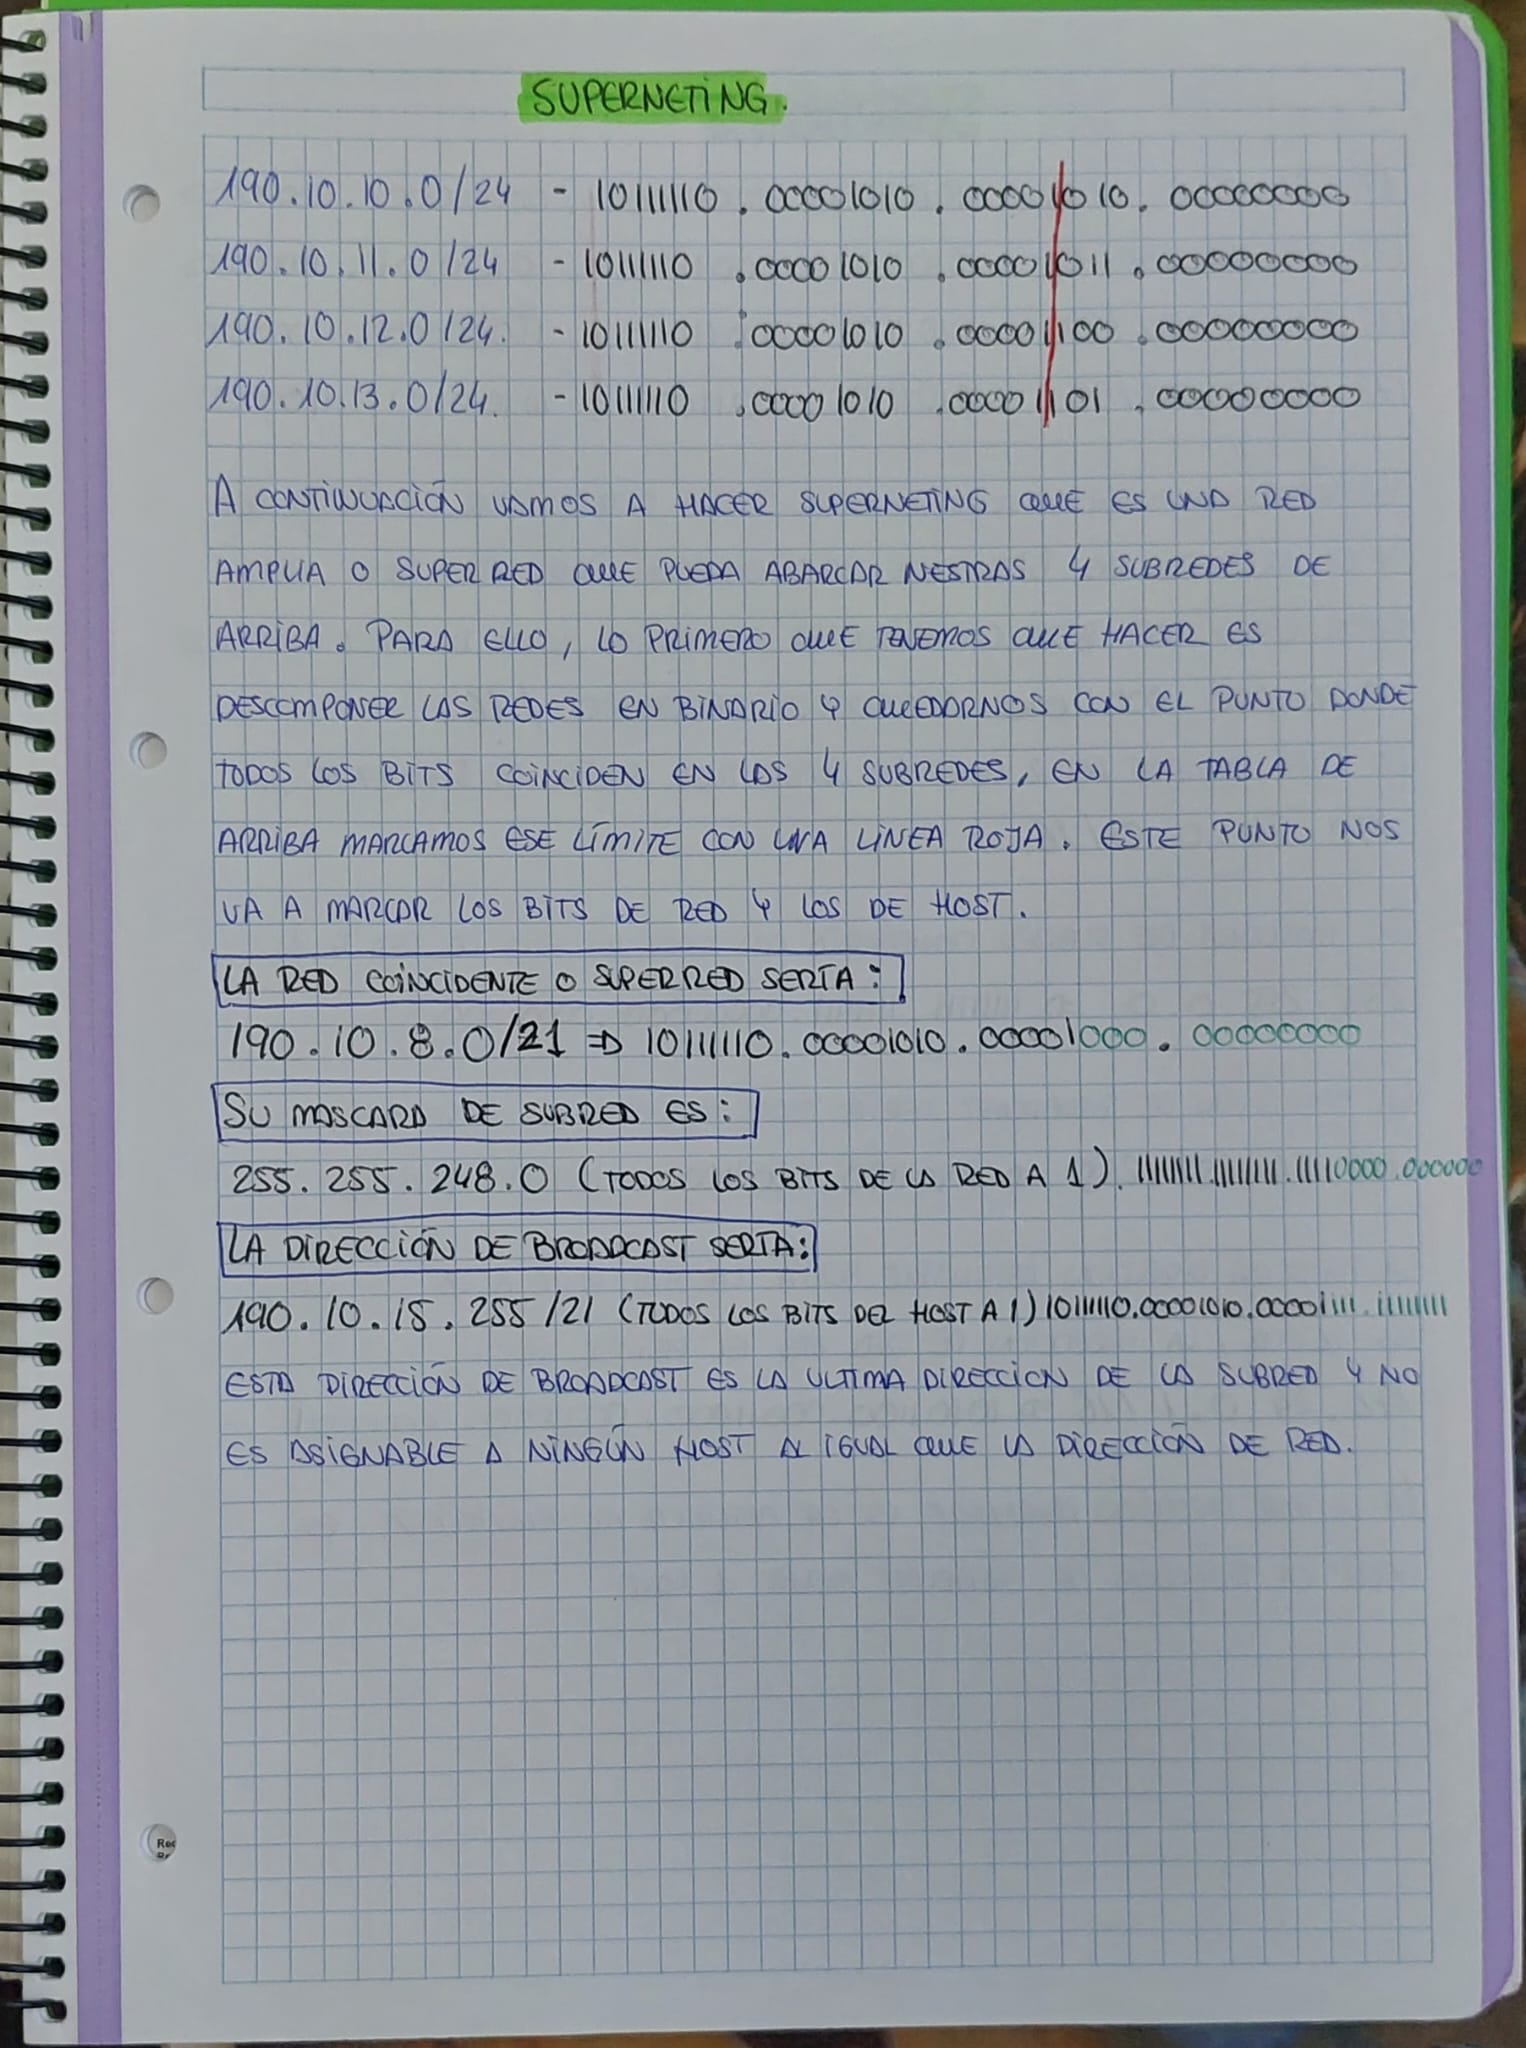 SUPERNETING.
190.10.10.0/24 - 10111110 . 00001010 . 00001010 . 00000000
190.10.11.0/24 - 10111110 . 00001010 . 00001011 . 00000000
190.10.12.0/24. - 10111110 . 00001010 . 00001100 . 00000000
190.10.13.0/24. - 10111110 . 00001010 . 00001101 . 00000000
A CONTINUACIÓN VAMOS A HACER SUPERNETING QUE ES UNA RED
AMPLIA O SUPER RED QUE PUEDA ABARCAR NESTRAS 4 SUBREDES DE
ARRIBA. PARA ELLO, LO PRIMERO QUE TENEMOS QUE HACER ES
DESCOMPONER LAS REDES EN BINARIO Y QUEDARNOS CON EL PUNTO DONDE
TODOS LOS BITS COINCIDEN EN LAS 4 SUBREDES, EN LA TABLA DE
ARRIBA MARCAMOS ESE LÍMITE CON UNA LINEA ROJA. ESTE PUNTO NOS
VA A MARCAR LOS BITS DE RED Y LOS DE HOST.
LA RED COINCIDENTE O SUPERRED SERÍA:
190.10.8.0/21 => 10111110.00001010.00001000.00000000
SU MASCARA DE SUBRED ES:
255.255.248.0 (TODOS LOS BITS DE LA RED A 1). 11111111.11111111.11110000.000000
LA DIRECCIÓN DE BROADCAST SERÍA:
190.10.15.255/21 (TODOS LOS BITS DEL HOST A 1) 10111110.00001010.00001111.11111111
ESTA DIRECCIÓN DE BROADCAST ES LA ULTIMA DIRECCION DE LA SUBRED Y NO
ES ASIGNABLE A NINGÚN HOST AL IGUAL QUE LA DIRECCIÓN DE RED.